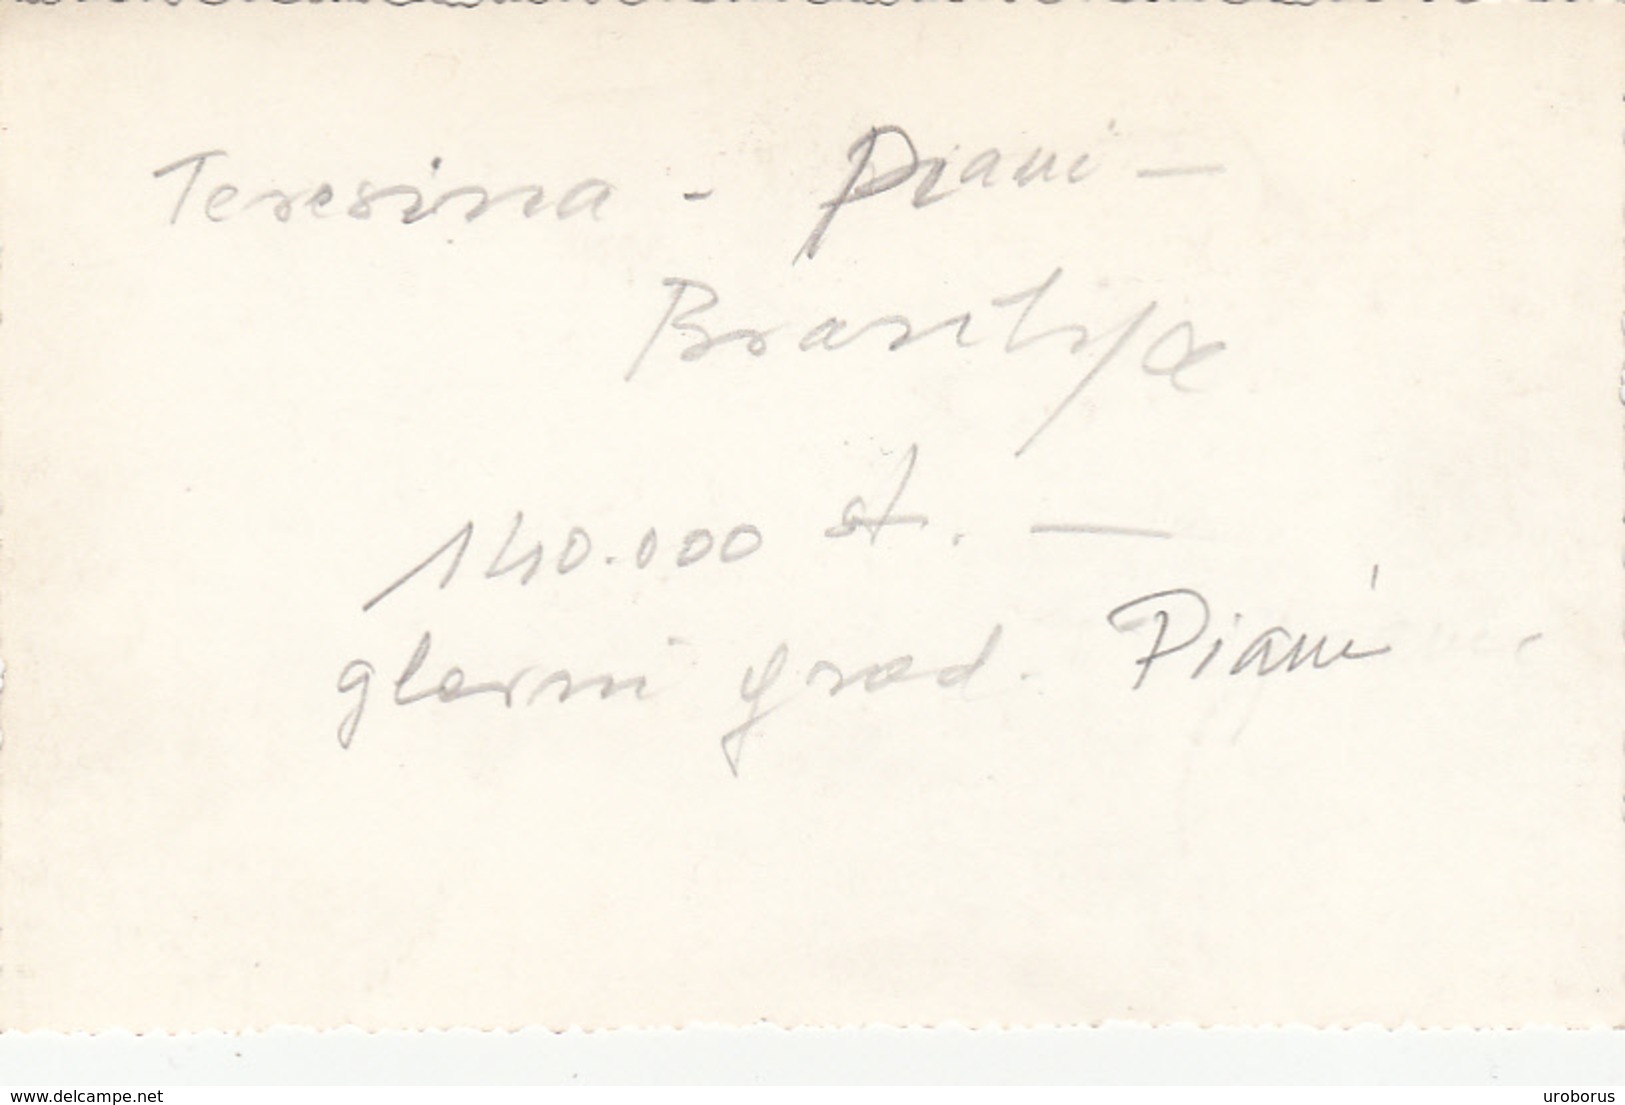 Teresina - Piaui -
Brazilija
140.000 st. -
glavni grad. Piaui
delcampe.net
uroborus